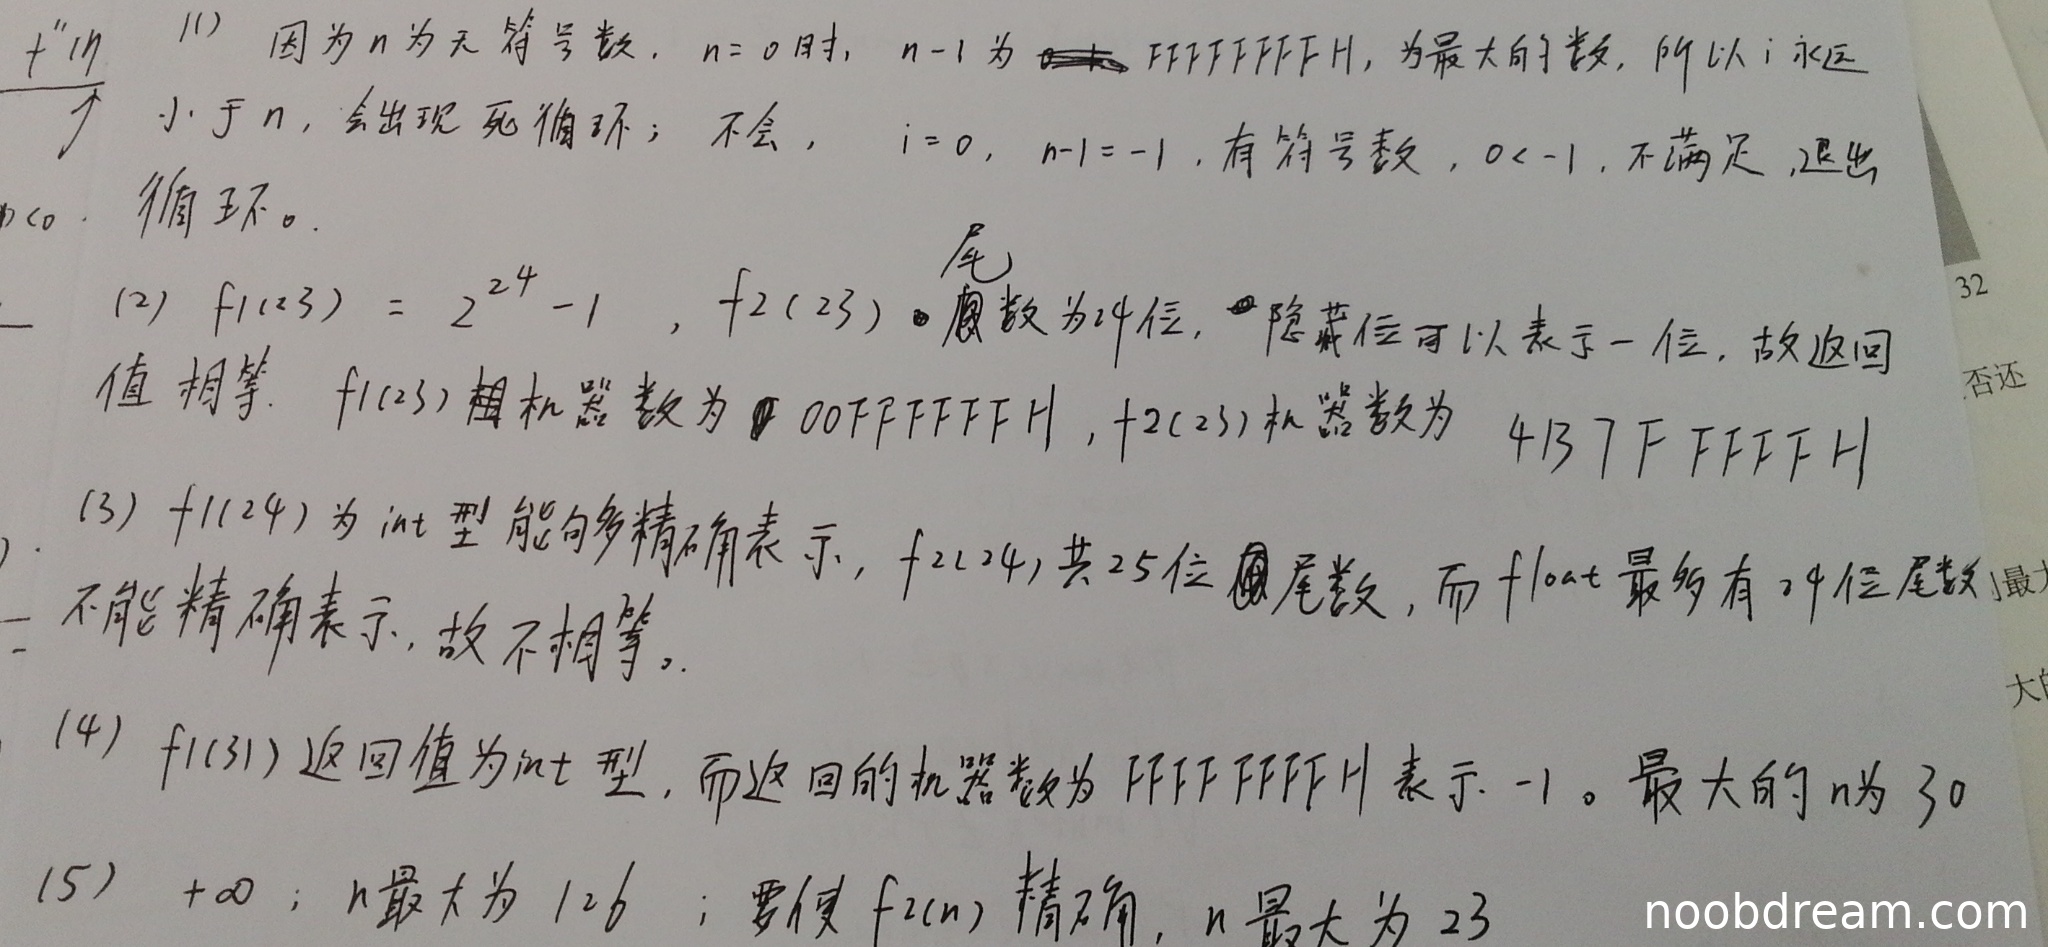 (1) 因为n为无符号数, n=0时, n-1为 FFFFFFFFH, 为最大的数, 所以i永远
小于n, 会出现死循环; 不会, i=0, n-1=-1, 有符号数, 0<-1, 不满足, 退出
循环。
(2) f1(23) = 2^24 - 1 , f2(23) 尾数为24位, 隐藏位可以表示一位, 故返回
值相等. f1(23)机器数为 00FFFFFFH, f2(23)机器数为 4B7FFFFFH
(3) f1(24)为int型能够多精确表示, f2(24)共25位尾数, 而float最多有24位尾数
不能精确表示, 故不相等。
(4) f1(31)返回值为int型, 而返回的机器数为FFFFFFFFH表示-1。最大的n为30
(5) +∞; n最大为126; 要使f2(n)精确, n最大为23
n<0.
32
否还
最大
大的
noobdream.com